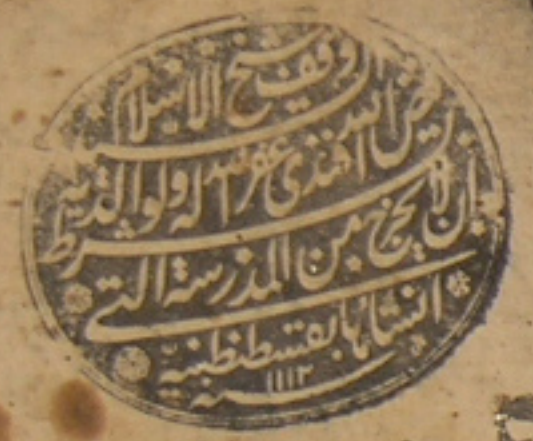 وقف شيخ الاسلام
السيد فيض الله افندى غفر الله له ولوالديه
بشرط ان لا يخرج من المدرسة التى
انشأها بقسطنطنية
سنة ١١١٢